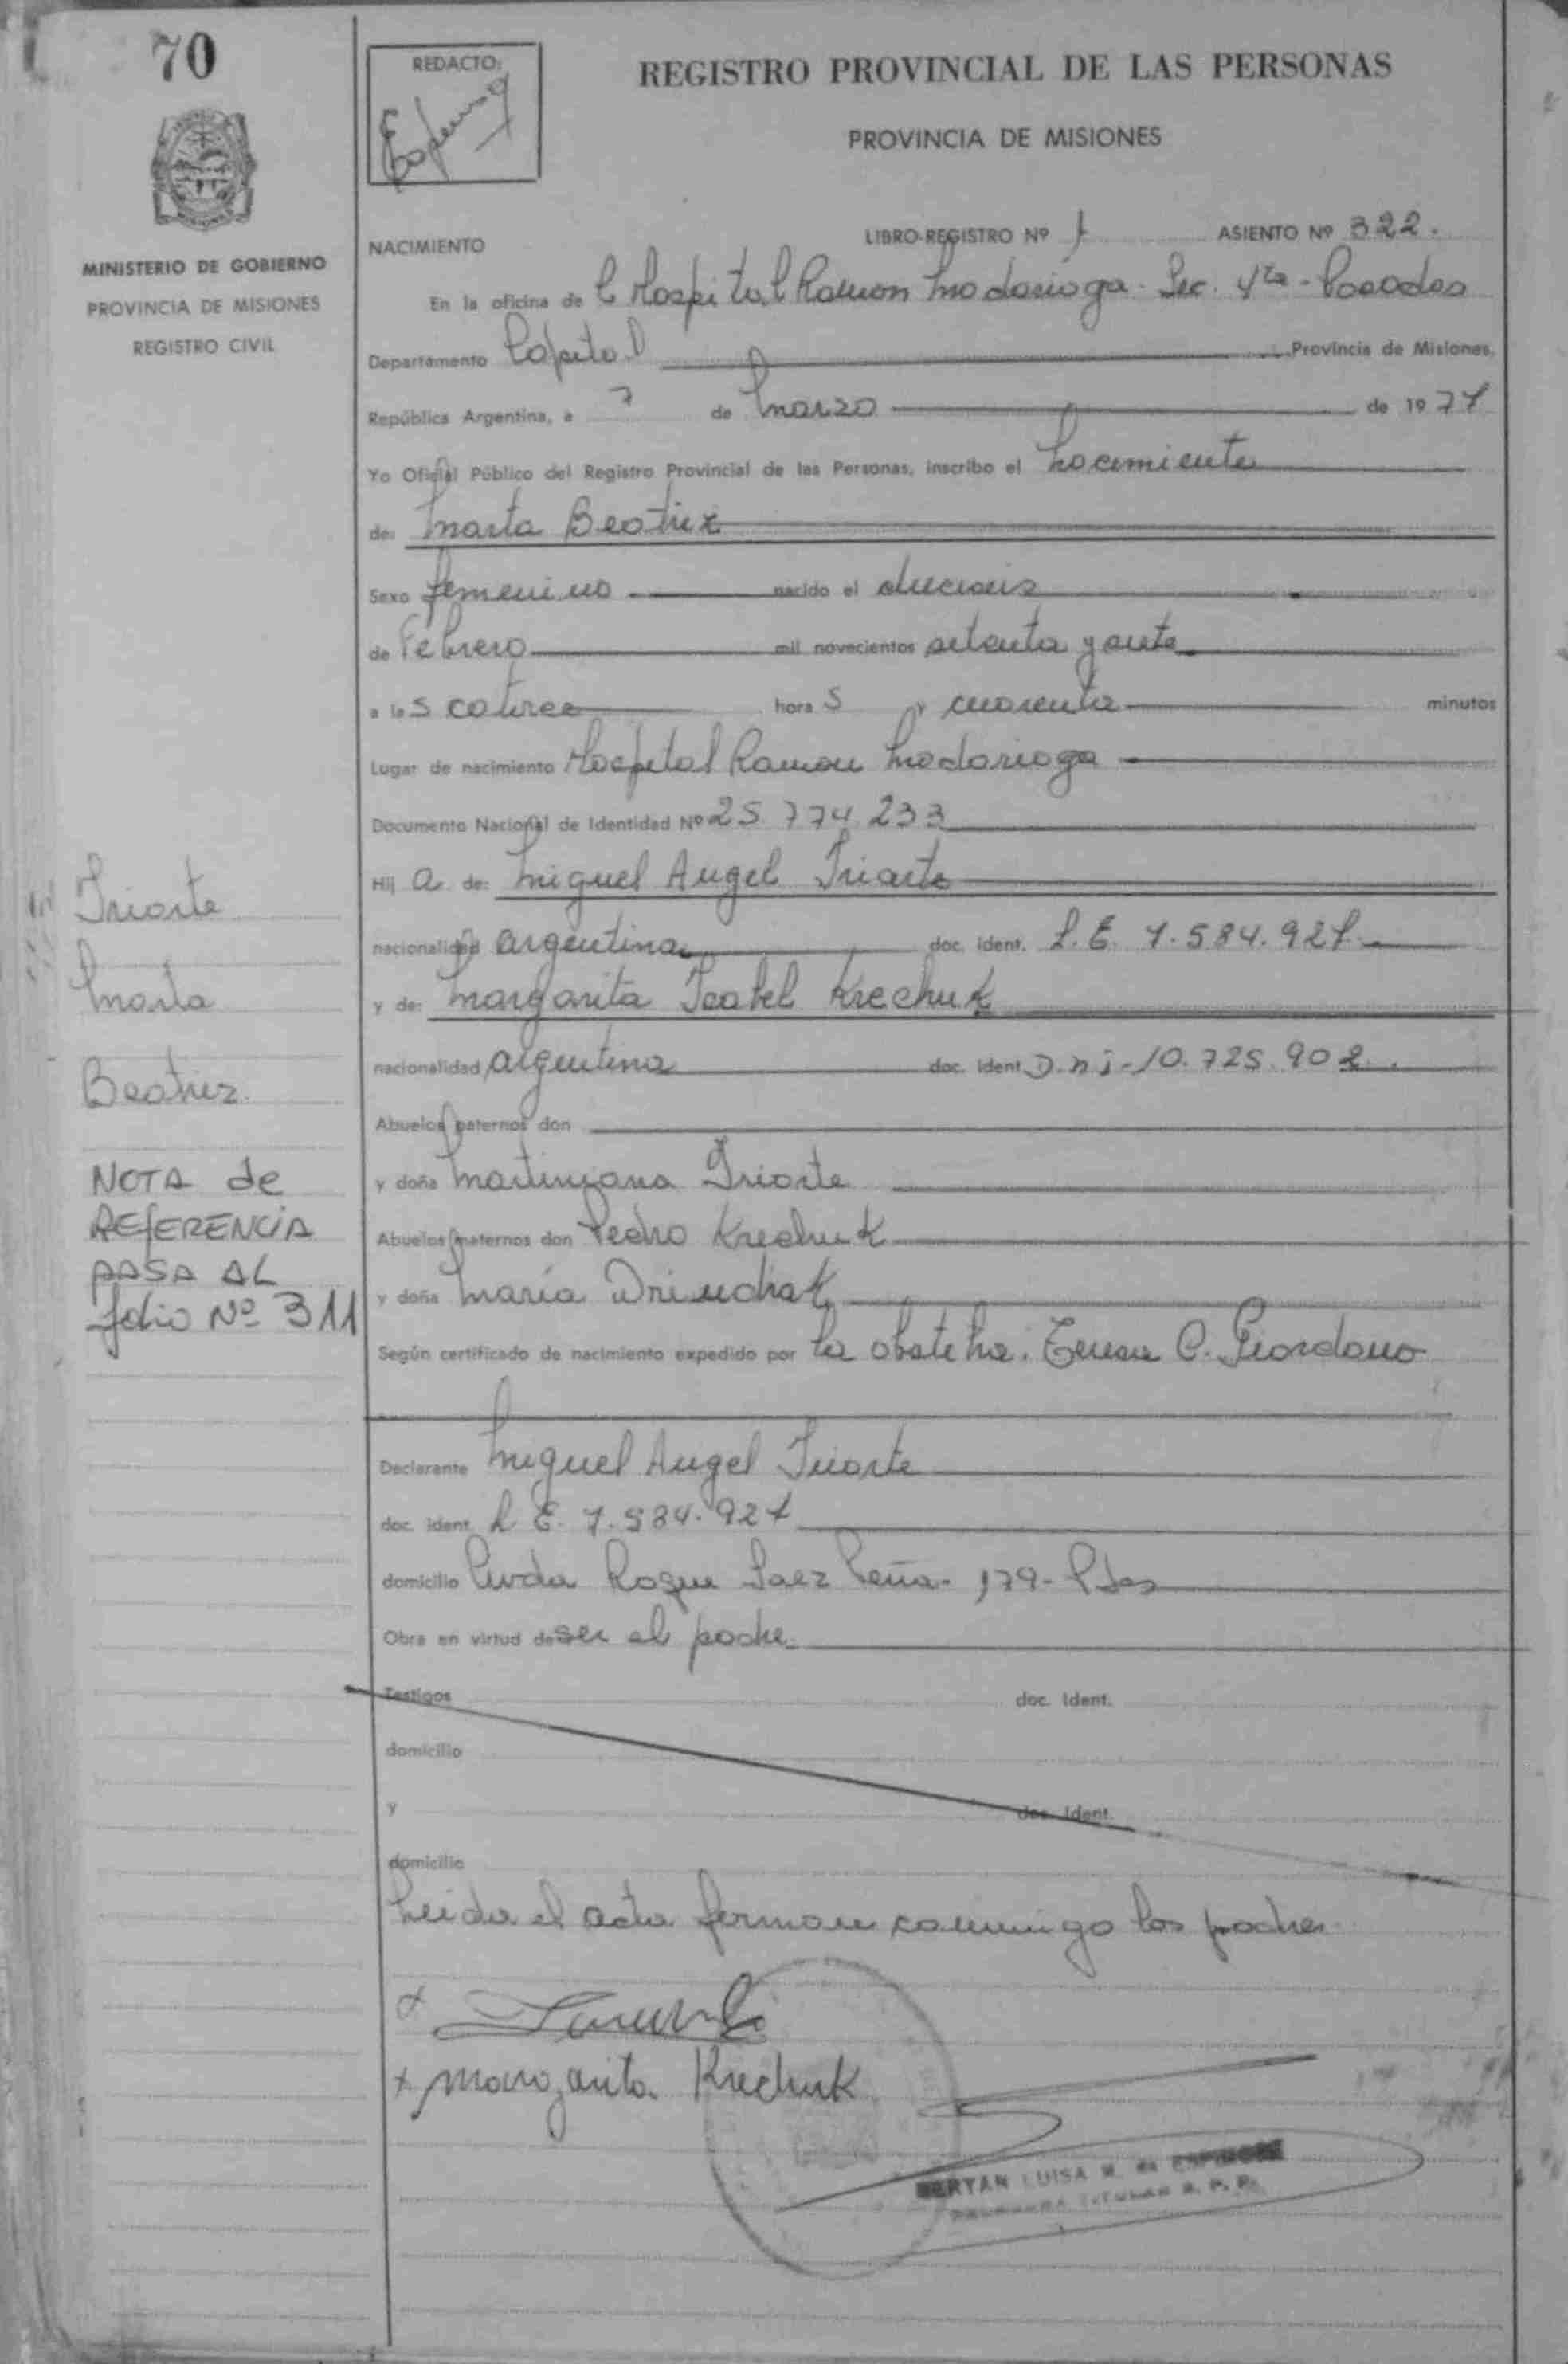 70
REDACTO:
REGISTRO PROVINCIAL DE LAS PERSONAS
PROVINCIA DE MISIONES
MINISTERIO DE GOBIERNO
PROVINCIA DE MISIONES
REGISTRO CIVIL
NACIMIENTO
LIBRO-REGISTRO Nº 1 ASIENTO Nº 322.
En la oficina de l Hospital Ramon Madariaga - Sec. 4ta - Posadas
Departamento Capital Provincia de Misiones,
República Argentina, a 7 de Marzo de 1977
Yo Oficial Público del Registro Provincial de las Personas, inscribo el Nacimiento
de: Marta Beatriz
Sexo femenino nacido el dieciseis
de Febrero mil novecientos setenta y siete
a las catorce horas y cuarenta minutos
Lugar de nacimiento Hospital Ramon Madariaga
Documento Nacional de Identidad Nº 25 774 233
Hij a de: Miguel Angel Iriarte
nacionalidad argentina doc. Ident. L.E. 7.584.927
y de: Margarita Isabel Krechuk
nacionalidad argentina doc. Ident. D.n i - 10.725.902.
Abuelos paternos don
y doña Martiniana Iriarte
Abuelos maternos don Pedro Krechuk
y doña Maria
Según certificado de nacimiento expedido por la obstetra: Teresa C. Giordano
Declarante Miguel Angel Iriarte
doc. Ident. L. E. 7.584.927
domicilio Avda Roque Saez Peña - 179 - Pdas
Obra en virtud de ser el padre.
Testigos doc. Ident.
domicilio
y doc. Ident.
domicilio
Leida el acta firman conmigo los padres
x
x Margarita Krechuk
LUISA M. de ESPINOSA
TITULAR R. P. P.
Iriarte
Marta
Beatriz
NOTA de
REFERENCIA
PASA AL
folio Nº 311